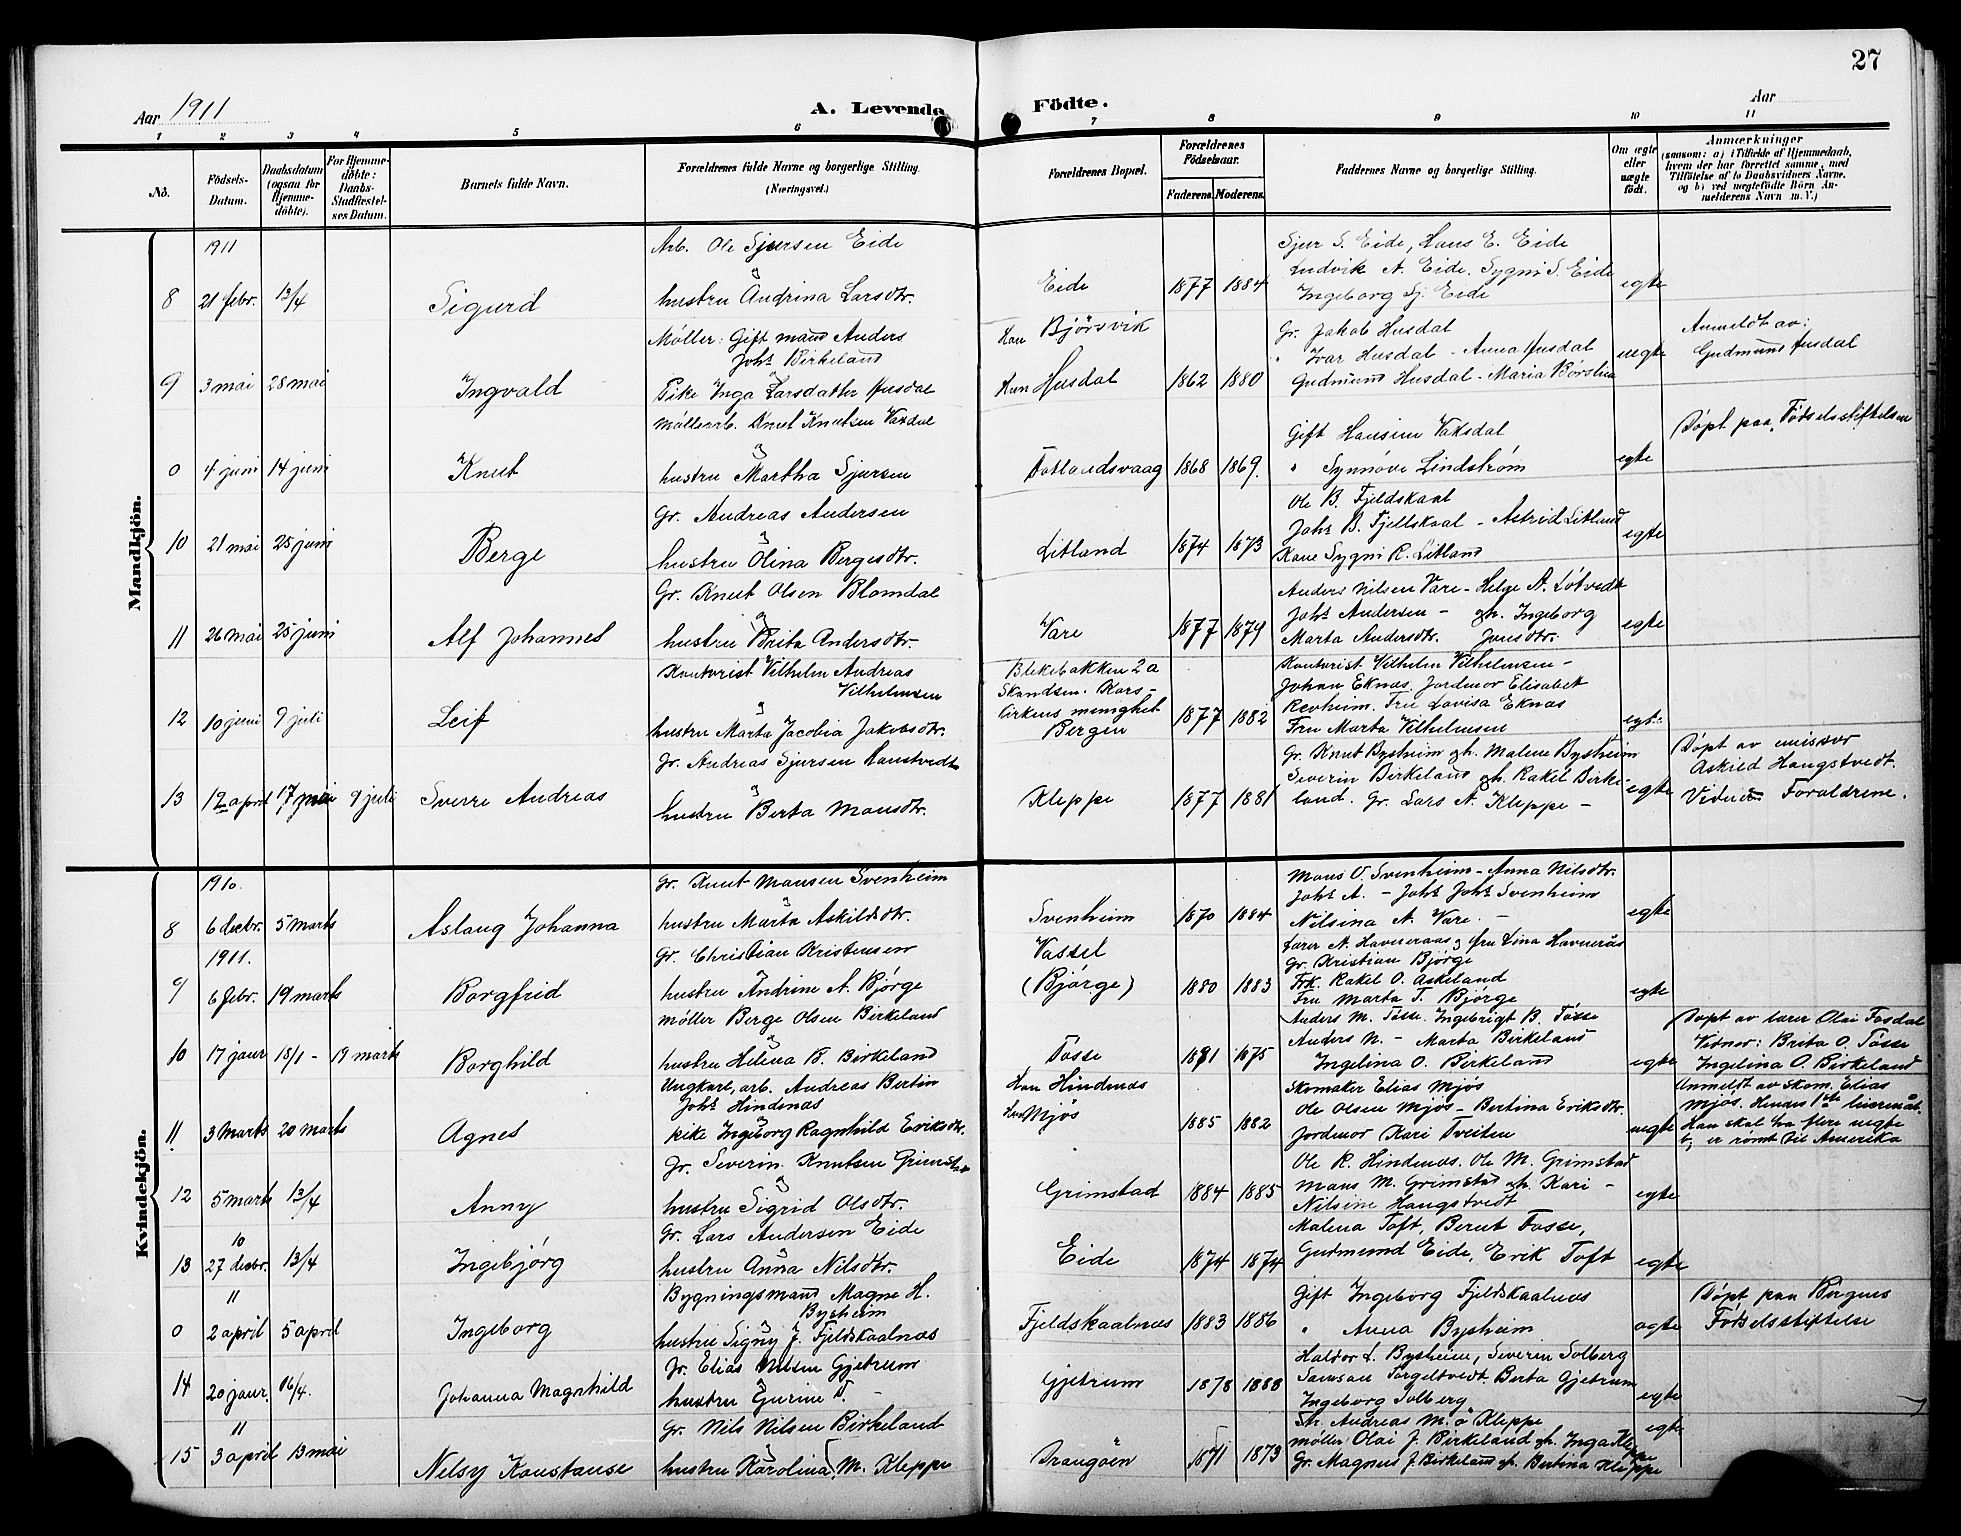 27
Aar 1911
A. Levende Födte.
Aar
1 2 3 4 5 6 7 8 9 10 11
No.
Födsels-Datum.
Daabsdatum (ogsaa for Hjemmedöbte).
For Hjemmedöbte: Daabs-Stadfæstelses Datum.
Barnets fulde Navn.
Forældrenes fulde Navne og borgerlige Stilling.
(Næringsvei.)
Forældrenes Bopæl.
Forældrenes Födselsaar.
Faderens. Moderens.
Faddernes Navne og borgerlige Stilling.
Om ægte eller uægte födt.
Anmærkninger
(saasom: a) i Tilfælde af Hjemmedaab,
hvem der har forrettet samme, med
Tilföielse af to Daabsvidners Navne.
og b) ved uægtefödte Börn An-
melderens Navn m. V.)
Mandkjön.
1911
Arb. Ole Sjursen Eide
Sjur S. Eide, Hans E. Eide
Ludvik A. Eide. Sygni S. Eide
8 21 febr. 13/4 Sigurd hustru Andrina Larsdtr. Eide 1877 1884 Ingeborg Sj. Eide egte
Møller: Gift mand Anders
Johs Birkeland
Han Bjørsvik
Gr. Jakob Husdal
" Ivar Husdal - Anna Husdal
Anmeldt av:
Gudmund Husdal
9 3 mai 28 mai Ingvald Pike Inga Larsdatter Husdal Hun Husdal 1862 1880 Gudmund Husdal - Maria uegte
Møllerarb. Knut Knutsen Vaxdal
Gift Hansine Vaksdal
Døpt paa Fødselsstiftelsen
0 4 juni 14 juni Knut hustru Martha Sjursen Fotlandsvaag 1868 1869. " Synnøve Lindstrøm egte
Gr. Andreas Andersen
Ole B. Fjeldskaal
Johs B. Fjellskaal - Astrid Litland
10 21 mai 25 juni Berge hustru Olina Bergesdtr. Litland 1874 1873 Kone Sygni R. Litland egte
Gr. Knut Olsen Blomdal
Anders Nilsen Vare - Helge A. Løtvedt
Johs Andersen - gh. Ingeborg
11 26 mai 25 juni Alf Johannes hustru Brita Andersdtr. Vare 1877 1879 Marta Andersdtr. Jonsdtr. egte
Kontorist Vilhelm Andreas
Vilhelmsen
Blekebakken 2a
Skandsen. Kors-
kirkens menighet
Bergen
Kontorist Vilhelm Vilhelmsen -
Johan Eknes. Jordmor Elisabet
Revheim. Fru Lovisa Eknes
12 10 juni 9 juli Leif hustru Marta Jacobia Jakobsdtr. 1877 1882 Fru Marta Vilhelmsen egt.
Gr. Andreas Sjursen Hanstvedt
Gr. Knut Bysheim gh. Malene Bysheim
Severin Birkeland gh. Rakel Birke-
Døpt av emissær
Askild Hangstvedt.
13 12 april 17 mai 9 juli Sverre Andreas hustru Berta Monsdtr. Kleppe 1877 1881 land. Gr. Lars A. Kleppe - egte Vidner Foraldrene.
Kvindekjön.
1910.
Gr. Knut Monsen Svenheim
Mons O. Svenheim - Anna Nilsdtr.
Johs A. - Johs Johs Svenheim
8 6 decbr. 5 marts Aslaug Johanna hustru Marta Askildsdtr. Svenheim 1870 1884 Nilsina A. Vare. - egte
1911.
Gr. Christian Kristensen
Vassel
Lærer N. Havneraas og fru Lina Havnerås
Gr. Kristian Bjørge
Frk. Rakel O. Askeland
9 6 febr. 19 marts Borgfrid hustru Andrine A. Bjørge (Bjørge) 1880 1883 Fru Marta T. Bjørge egte
Møller Berge Olsen Birkeland
Anders M. Tøsse. Ingebrigt B. Tøsse
Anders N. - Marta Birkeland
Døpt av lærer Olai Fosdal
Vidner: Brita O. Tøsse
10 17 janr 18/1 - 19 marts Borghild hustru Helena B. Birkeland Tøsse 1881 1875 Ingelina O. Birkeland egte Ingelina O. Birkeland
Ungkarl, arb. Andreas Bertin
Johs Hindenas
Han Hindenas
Hun Mjøs
Skomaker Elias Mjøs
Ole Olsen Mjøs - Bertina Eriksdtr.
Anmeldt av skom. Elias
Mjøs. Hendes 1ste leiermål.
Han skal ha flere uegte
11 3 marts 20 marts Agnes pike Ingeborg Ragnhild Eriksdtr. 1885 1882 Jordmor Kari Tveiten uegte b; er rømt til Amerika
Gr. Severin Knutsen Grimstad
Ole K. Hindenes. Ole M. Grimstad
Mons M. Grimstad gh. Kari -
12 5 marts 13/4 Anny hustru Sigrid Olsdtr. Grimstad 1884 1885 Nilsine Hangstvedt egte
10
Gr. Lars Andersen Eide
Malena Toft, Bernt Fosse,
13 27 decbr. 13/4 Ingebjørg hustru Anna Nilsdtr. Eide 1874 1874 Gudmund Eide, Erik Toft egte
11
Bygningsmand Magne H.
Bysheim
Gift Ingeborg Fjeldskaalnes
Døpt paa Bergens
0 2 april 5 april Ingeborg hustru Signy J. Fjeldskaalnes Fjeldskaalnes 1883 1886 " Anna Bysheim egte Fødselsstiftelse
Gr. Elias Nilsen Gjetrum
Haldor L. Bysheim, Severin Solberg
Samson Torgeltvedt. Berta Gjetrum
14 20 janr. 16/4. Johanna Magnhild hustru Gurine T. - Gjetrum 1878 1888 Ingeborg Solberg egte
11
Gr. Nils Nilsen Birkeland
Andreas M. Kleppe
møller Olai J. Birkeland gh. Inga Kleppe
15 3 april 13 mai Nelsy Konstanse hustru Karolina M. Kleppe 1871 1873 Gr. Magnus J. Birkeland gh. Bertina Kleppe egte